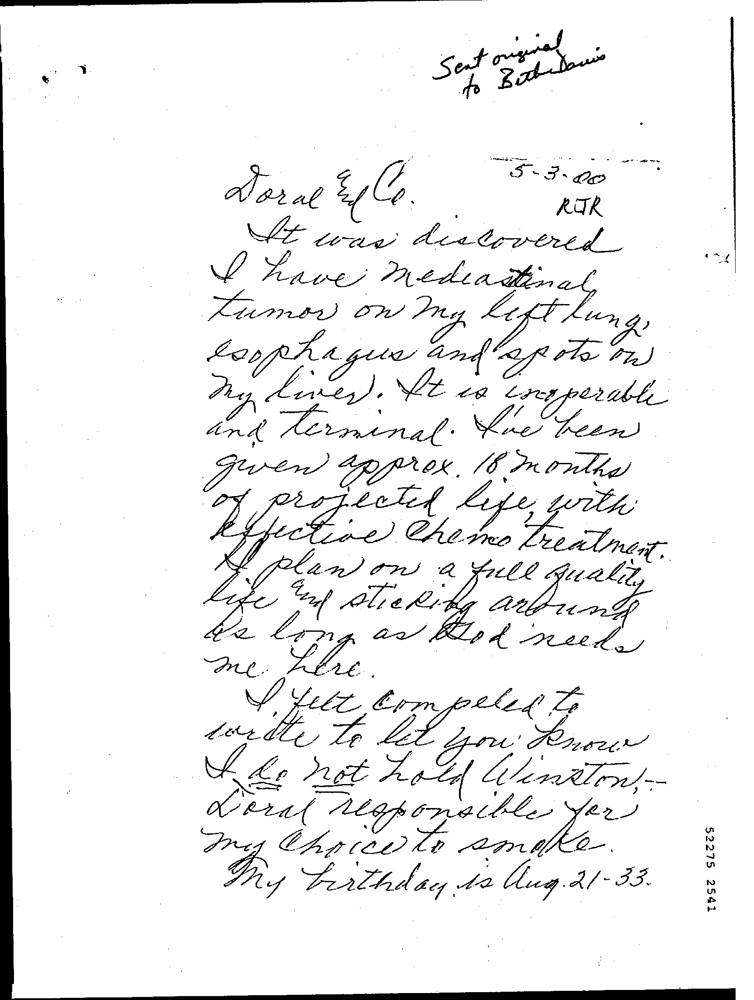 Sent original
to Beth Davis
5-3-00
RJR
Doral and Co.
It was discovered
I have mediastinal
tumor on my left lung,
esophagus and spots on
my liver. It is inoperable
and terminal. I've been
given approx. 18 months
of projected life, with
effective chemo treatment.
I plan on a full quality
life and sticking around
as long as God needs
me here.
I felt compeled to
write to let you know
I do not hold Winston, -
Doral responsible for
my choice to smoke.
My birthday is Aug. 21-33.
52275 2541